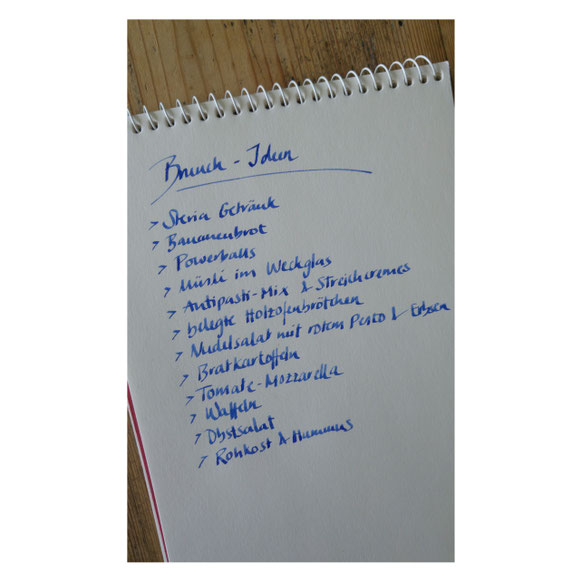 Brunch - Ideen
> Stevia Getränk
> Bananenbrot
> Powerballs
> Müsli im Weckglas
> Antipasti-Mix & Streichcremes
> belegte Holzofenbrötchen
> Nudelsalat mit rotem Pesto & Erbsen
> Bratkartoffeln
> Tomate-Mozzarella
> Waffeln
> Obstsalat
> Rohkost & Hummus